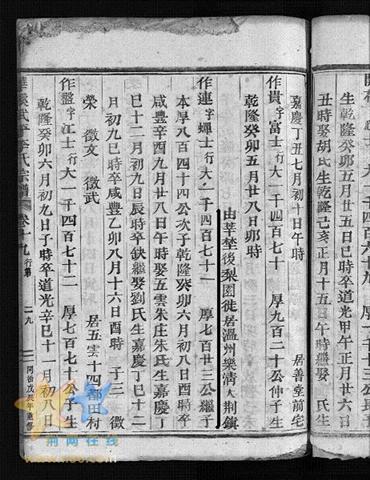 生乾隆癸卯五月廿八日辰時卒道光甲午正月廿六日
丑時娶胡氏生乾隆乙亥正月十五日午時繼娶 氏生
嘉慶丁丑七月初十日午時 居善堂前宅
作貴字富士行大一千四百七十 厚九百二十公仲子生
乾隆癸卯五月廿八日卯時
由莘塋後梨園徙居溫州樂清大荊鎮
作連字蟬士行大一千四百七十一 厚七百廿三公繼子
本厚八百四十四公次子乾隆癸卯六月初八日酉時卒
咸豐辛酉九月廿八日午時娶五雲朱庄朱氏生嘉慶丁
巳十二月初九日辰時卒缺繼娶劉氏生嘉慶丁巳十二
月初九巳時卒咸豐乙卯八月十六日酉時 子三 徵
榮 徵文 徵武 居五雲十四都田村
作盤字江士行大一千四百七十二 厚七百七十公子生
乾隆癸卯六月初九日子時卒道光辛巳十一月初八日
李氏宗譜 卷十九 行第 二九 同治戊辰年重修
在线